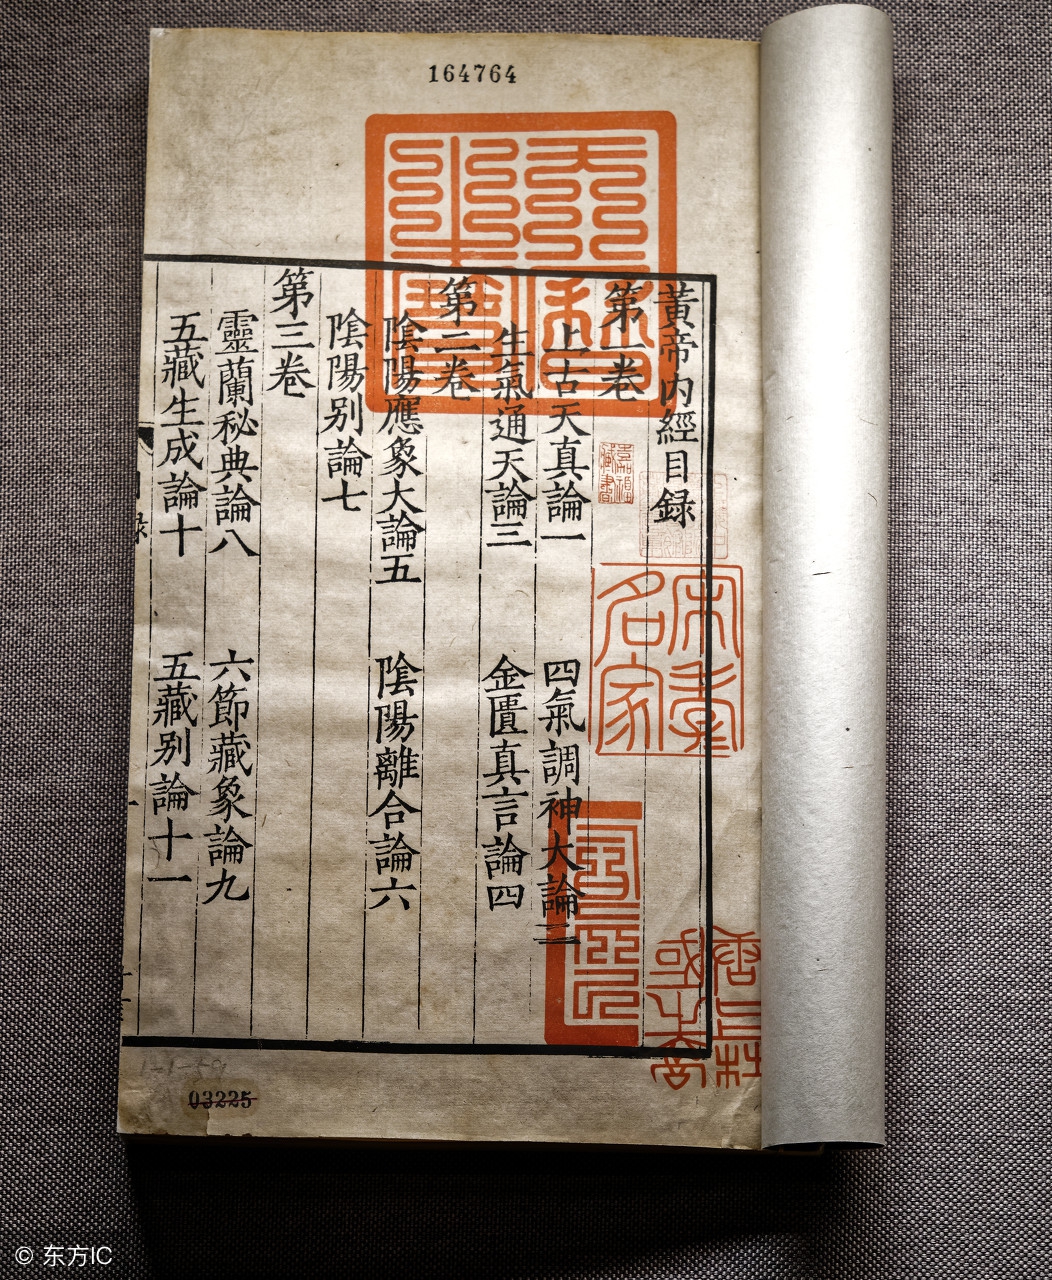 164764
黃帝内經目録
第一卷
上古天真論一 四氣調神大論二
生氣通天論三 金匱真言論四
第二卷
陰陽應象大論五 陰陽離合論六
陰陽别論七
第三卷
靈蘭秘典論八 六節藏象論九
五藏生成論十 五藏别論十一
嘉禧藏書
宋本
名家
03225
© 东方IC